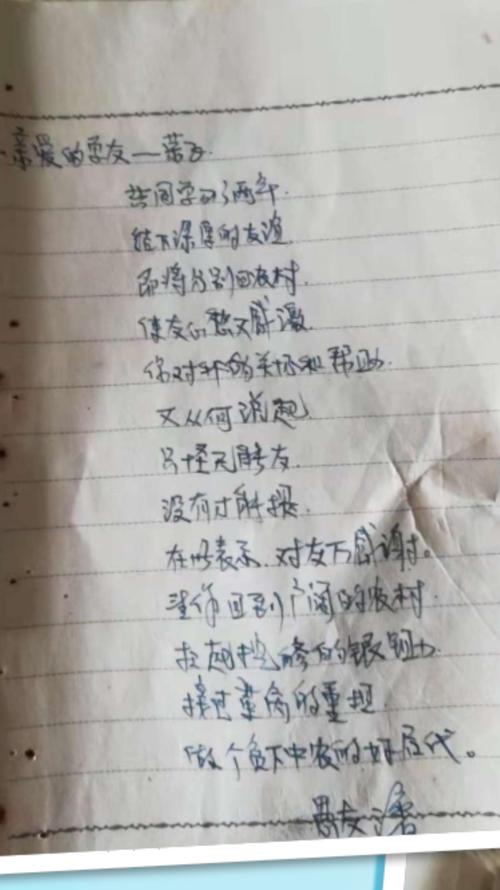 亲爱的学友——荣
共同学习了两年.
结下深厚的友谊
即将分别回农村.
使友心 感激.
你对我的关怀和帮助.
又从何说起
只怪无能友.
没有才能
在此表示.对友万感谢.
望你回到广阔的农村.
拉起 的银
接过革命的重担
做个贫下中农的好后代。
愚友